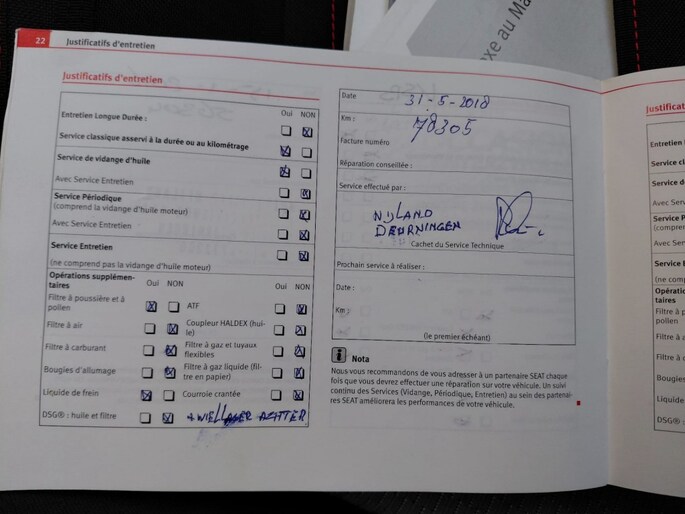 22 Justificatifs d'entretien
xe au Ma
Justificatifs d'entretien
Oui NON
Entretien Longue Durée :
Service classique asservi à la durée ou au kilométrage
Service de vidange d'huile
Avec Service Entretien
Service Périodique
(comprend la vidange d'huile moteur)
Avec Service Entretien
Service Entretien
(ne comprend pas la vidange d'huile moteur)
Opérations supplémen-
taires
Oui NON Oui NON
Filtre à poussière et à
pollen
ATF
Filtre à air
Coupleur HALDEX (hui-
le)
Filtre à carburant
Filtre à gaz et tuyaux
flexibles
Bougies d'allumage
Filtre à gaz liquide (fil-
tre en papier)
Liquide de frein
Courroie crantée
DSG® : huile et filtre
+ WIELLAGER ACHTER
Date 31-5-2018
Km : 78305
Facture numéro
Réparation conseillée :
Service effectué par :
NIJLAND
DEURNINGEN
Cachet du Service Technique
Prochain service à réaliser :
Date :
Km :
(le premier échéant)
i Nota
Nous vous recommandons de vous adresser à un partenaire SEAT chaque
fois que vous devrez effectuer une réparation sur votre véhicule. Un suivi
continu des Services (Vidange, Périodique, Entretien) au sein des partenai-
res SEAT améliorera les performances de votre véhicule.
Justificatif
Entretien
Service cla
Service de
Avec Servi
Service P
(comprend
Avec Serv
Service E
(ne comp
Opératio
taires
Filtre à p
pollen
Filtre à a
Filtre à c
Bougies
Liquide
DSG®